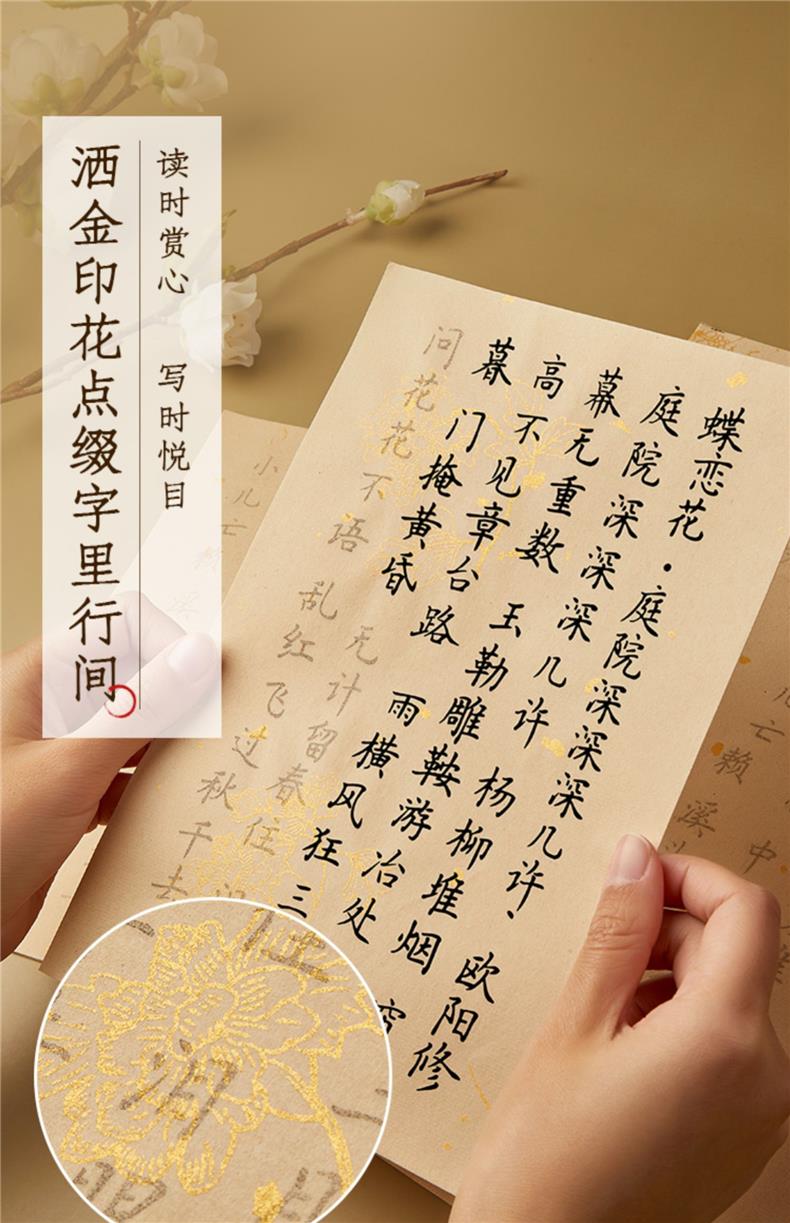 读时赏心 写时悦目
洒金印花点缀字里行间
蝶恋花·庭院深深深几许、 欧阳修
庭院深深深几许 杨柳堆烟
幕无重数 玉勒雕鞍游冶处
高不见章台路 雨横风狂三
暮 门掩黄昏 无计留春住
问花花不语 乱红飞过秋千去
小儿亡赖
亡赖溪